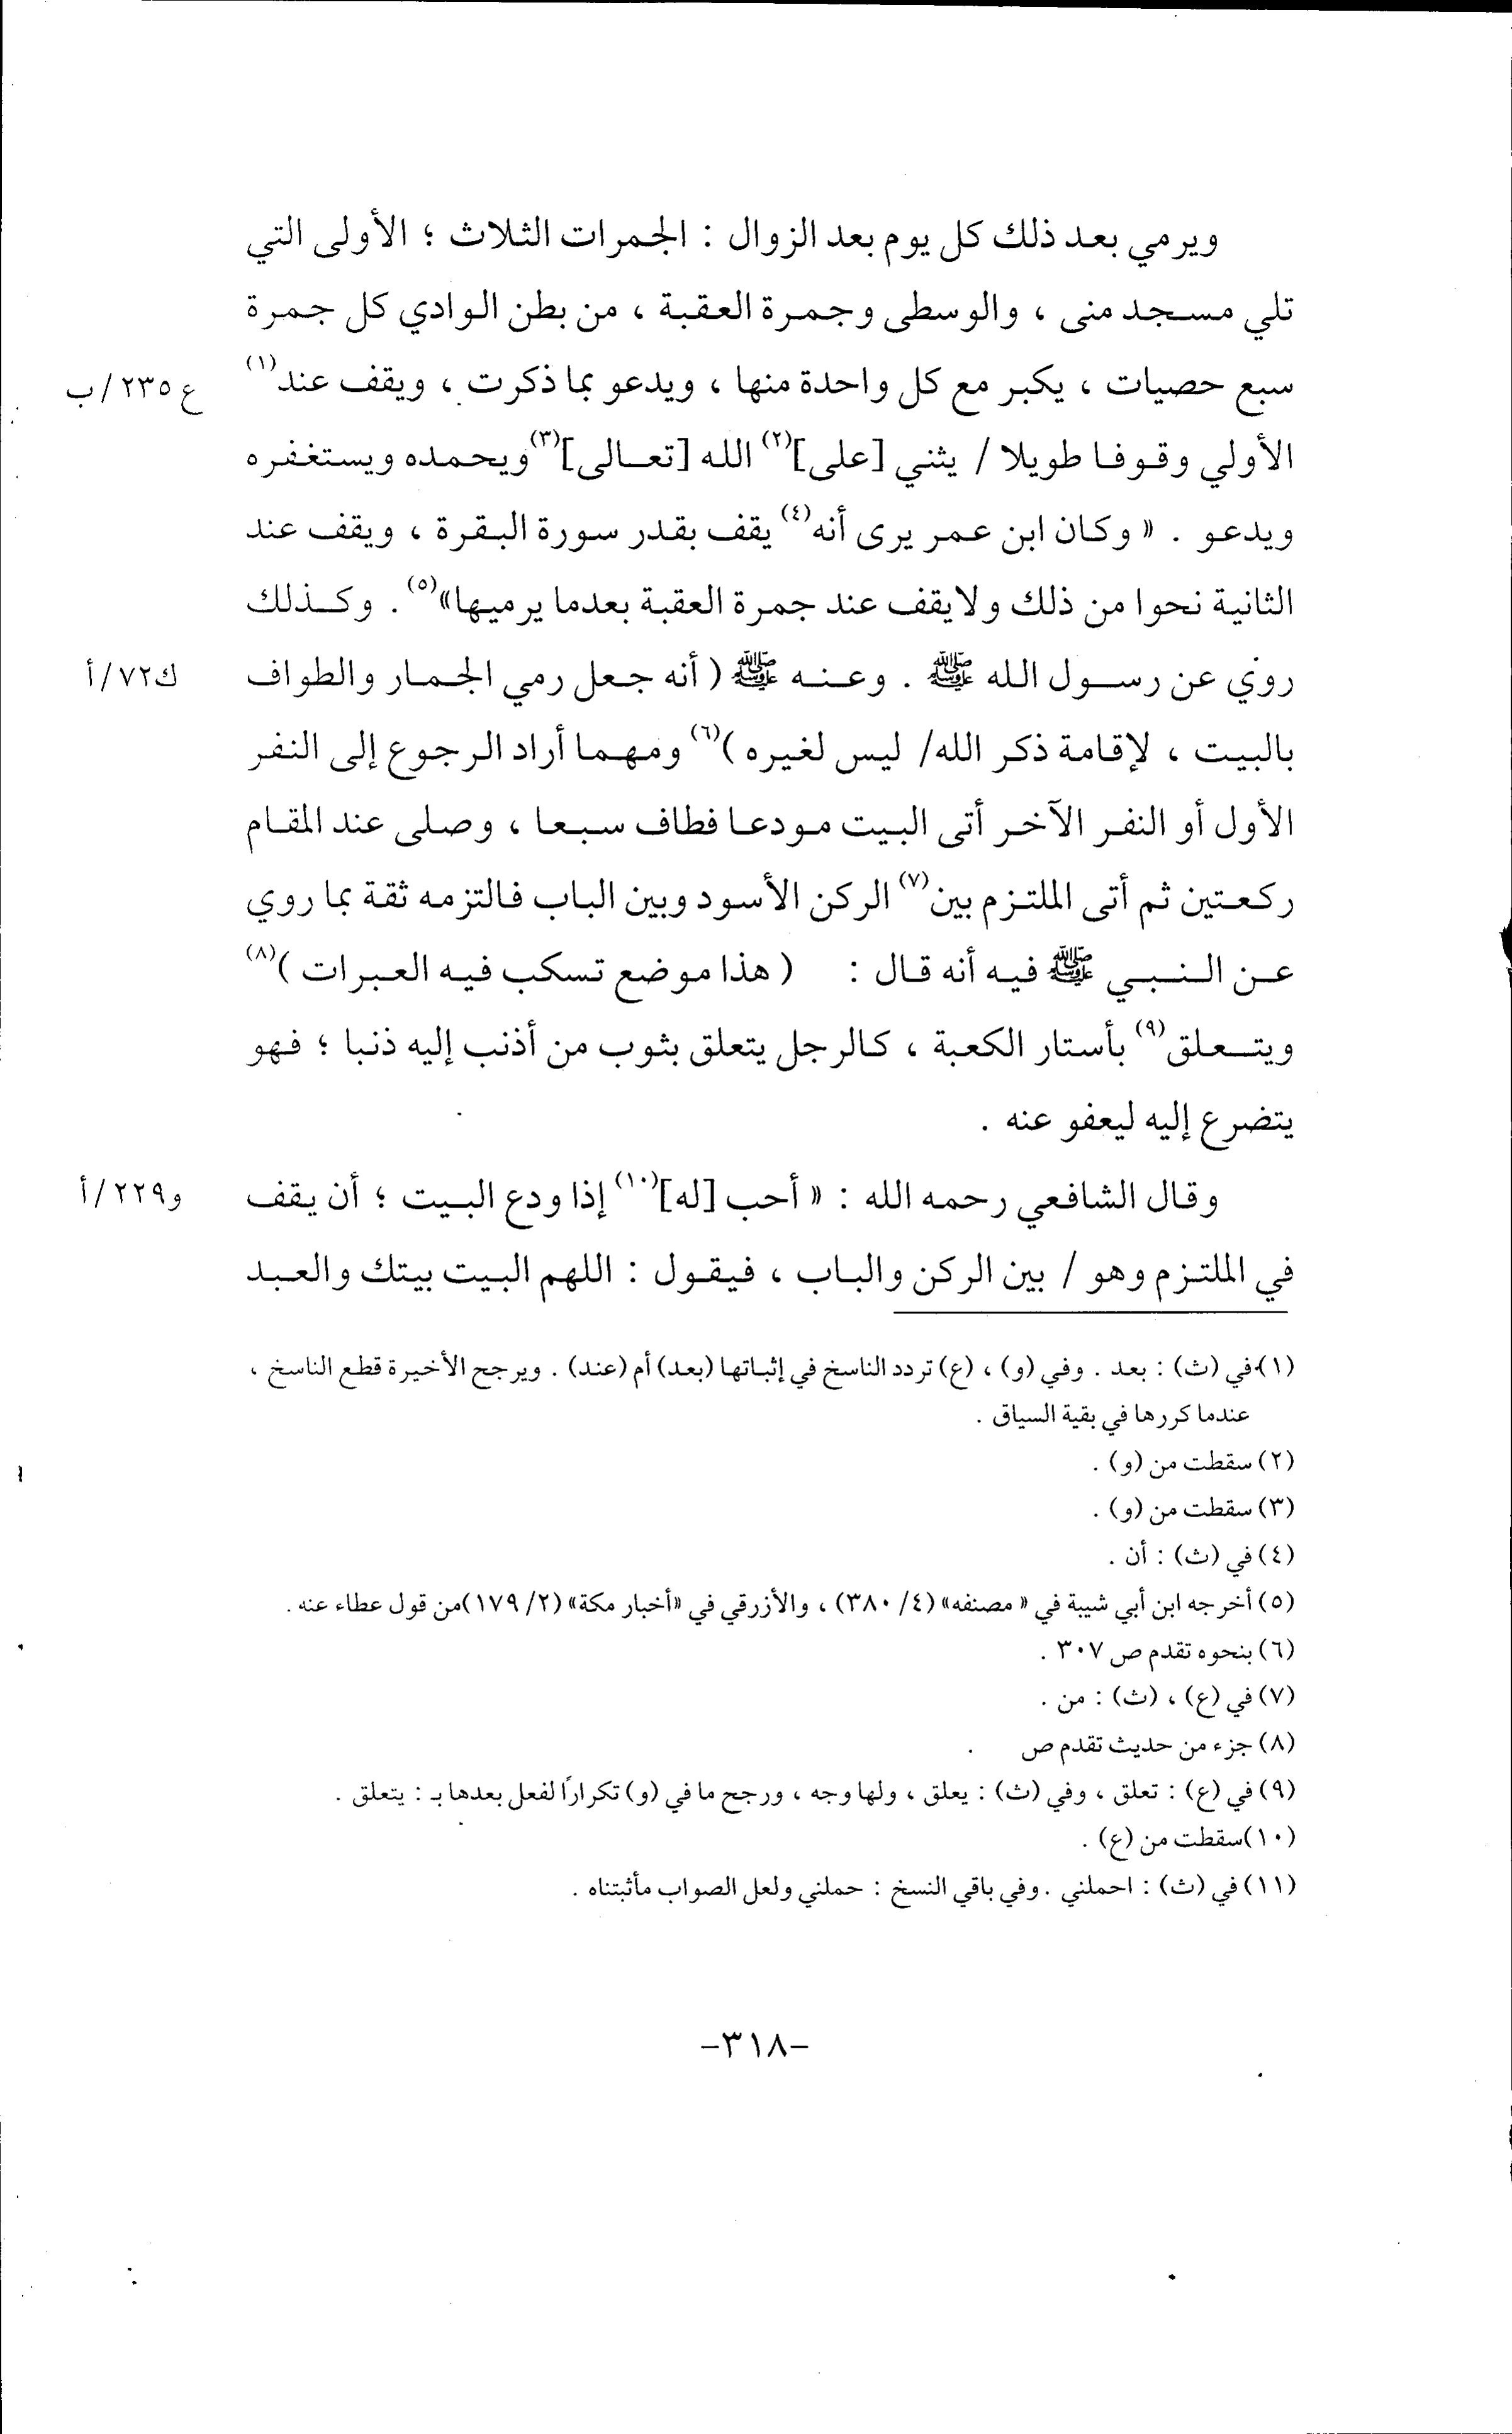 ويرمي بعد ذلك كل يوم بعد الزوال : الجمرات الثلاث ؛ الأولى التي
تلي مسجد منى ، والوسطى وجمرة العقبة ، من بطن الوادي كل جمرة
سبع حصيات ، يكبر مع كل واحدة منها ، ويدعو بما ذكرت ، ويقف عند(١)
ع ٢٣٥/ب
الأولي وقوفا طويلا / يثني [على](٢) الله [تعالى](٣) ويحمده ويستغفره
ويدعو . « وكان ابن عمر يرى أنه(٤) يقف بقدر سورة البقرة ، ويقف عند
الثانية نحوا من ذلك ولايقف عند جمرة العقبة بعدما يرميها»(٥) . وكذلك
روي عن رسول الله ﷺ . وعنه ﷺ ( أنه جعل رمي الجمار والطواف
ك٧٢/أ
بالبيت ، لإقامة ذكر الله/ ليس لغيره )(٦) ومهما أراد الرجوع إلى النفر
الأول أو النفر الآخر أتى البيت مودعا فطاف سبعا ، وصلى عند المقام
ركعتين ثم أتى الملتزم بين(٧) الركن الأسود وبين الباب فالتزمه ثقة بما روي
عن النبي ﷺ فيه أنه قال : ( هذا موضع تسكب فيه العبرات )(٨)
ويتعلق(٩) بأستار الكعبة ، كالرجل يتعلق بثوب من أذنب إليه ذنبا ؛ فهو
يتضرع إليه ليعفو عنه .
وقال الشافعي رحمه الله : « أحب [له](١٠) إذا ودع البيت ؛ أن يقف
و٢٢٩/أ
في الملتزم وهو / بين الركن والباب ، فيقول : اللهم البيت بيتك والعبد
(١) في (ث) : بعد . وفي (و) ، (ع) تردد الناسخ في إثباتها (بعد) أم (عند) . ويرجح الأخيرة قطع الناسخ ،
عندما كررها في بقية السياق .
(٢) سقطت من (و) .
(٣) سقطت من (و) .
(٤) في (ث) : أن .
(٥) أخرجه ابن أبي شيبة في « مصنفه» (٤/ ٣٨٠) ، والأزرقي في «أخبار مكة» (٢/ ١٧٩) من قول عطاء عنه .
(٦) بنحوه تقدم ص ٣٠٧ .
(٧) في (ع) ، (ث) : من .
(٨) جزء من حديث تقدم ص .
(٩) في (ع) : تعلق ، وفي (ث) : يعلق ، ولها وجه ، ورجح ما في (و) تكرارًا لفعل بعدها بـ : يتعلق .
(١٠) سقطت من (ع) .
(١١) في (ث) : احملني . وفي باقي النسخ : حملني ولعل الصواب مأثبتناه .
-٣١٨-